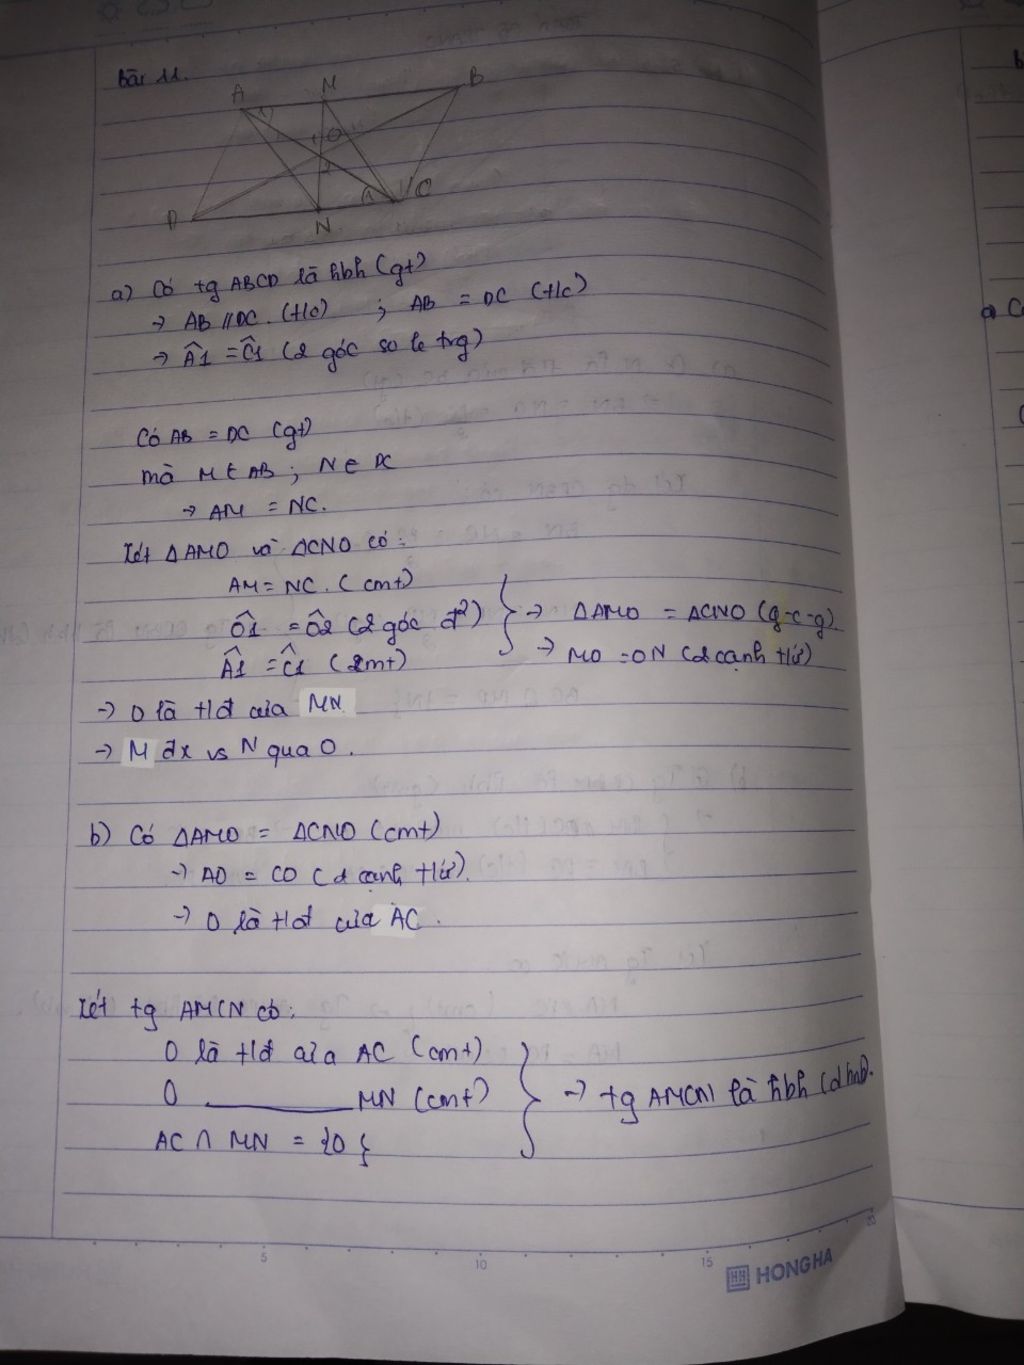 Bài 11.
A M B
1
1 O
2
1 C
D N
a) Có tg ABCD là hbh (gt)
→ AB // DC. (t/c) ; AB = DC (t/c)
→ Â1 = Ĉ1 (2 góc so le trg)
Có AB = DC (gt)
mà M ∈ AB ; N ∈ DC
→ AM = NC.
Xét ΔAMO và ΔCNO có:
AM = NC. (cmt)
Ô1 = Ô2 (2 góc đ²) } → ΔAMO = ΔCNO (g-c-g).
Â1 = Ĉ1 (cmt) → MO = ON (2 cạnh t/ứ)
→ O là t/đ của MN
→ M đx vs N qua O.
b) Có ΔAMO = ΔCNO (cmt)
→ AO = CO (2 cạnh t/ứ).
→ O là t/đ của AC.
Xét tg AMCN có:
O là t/đ của AC (cmt)
O ______ MN (cmt) } → tg AMCN là hbh (dhnb).
AC ∩ MN = {O}
5 10 15 20
HH HONG HA